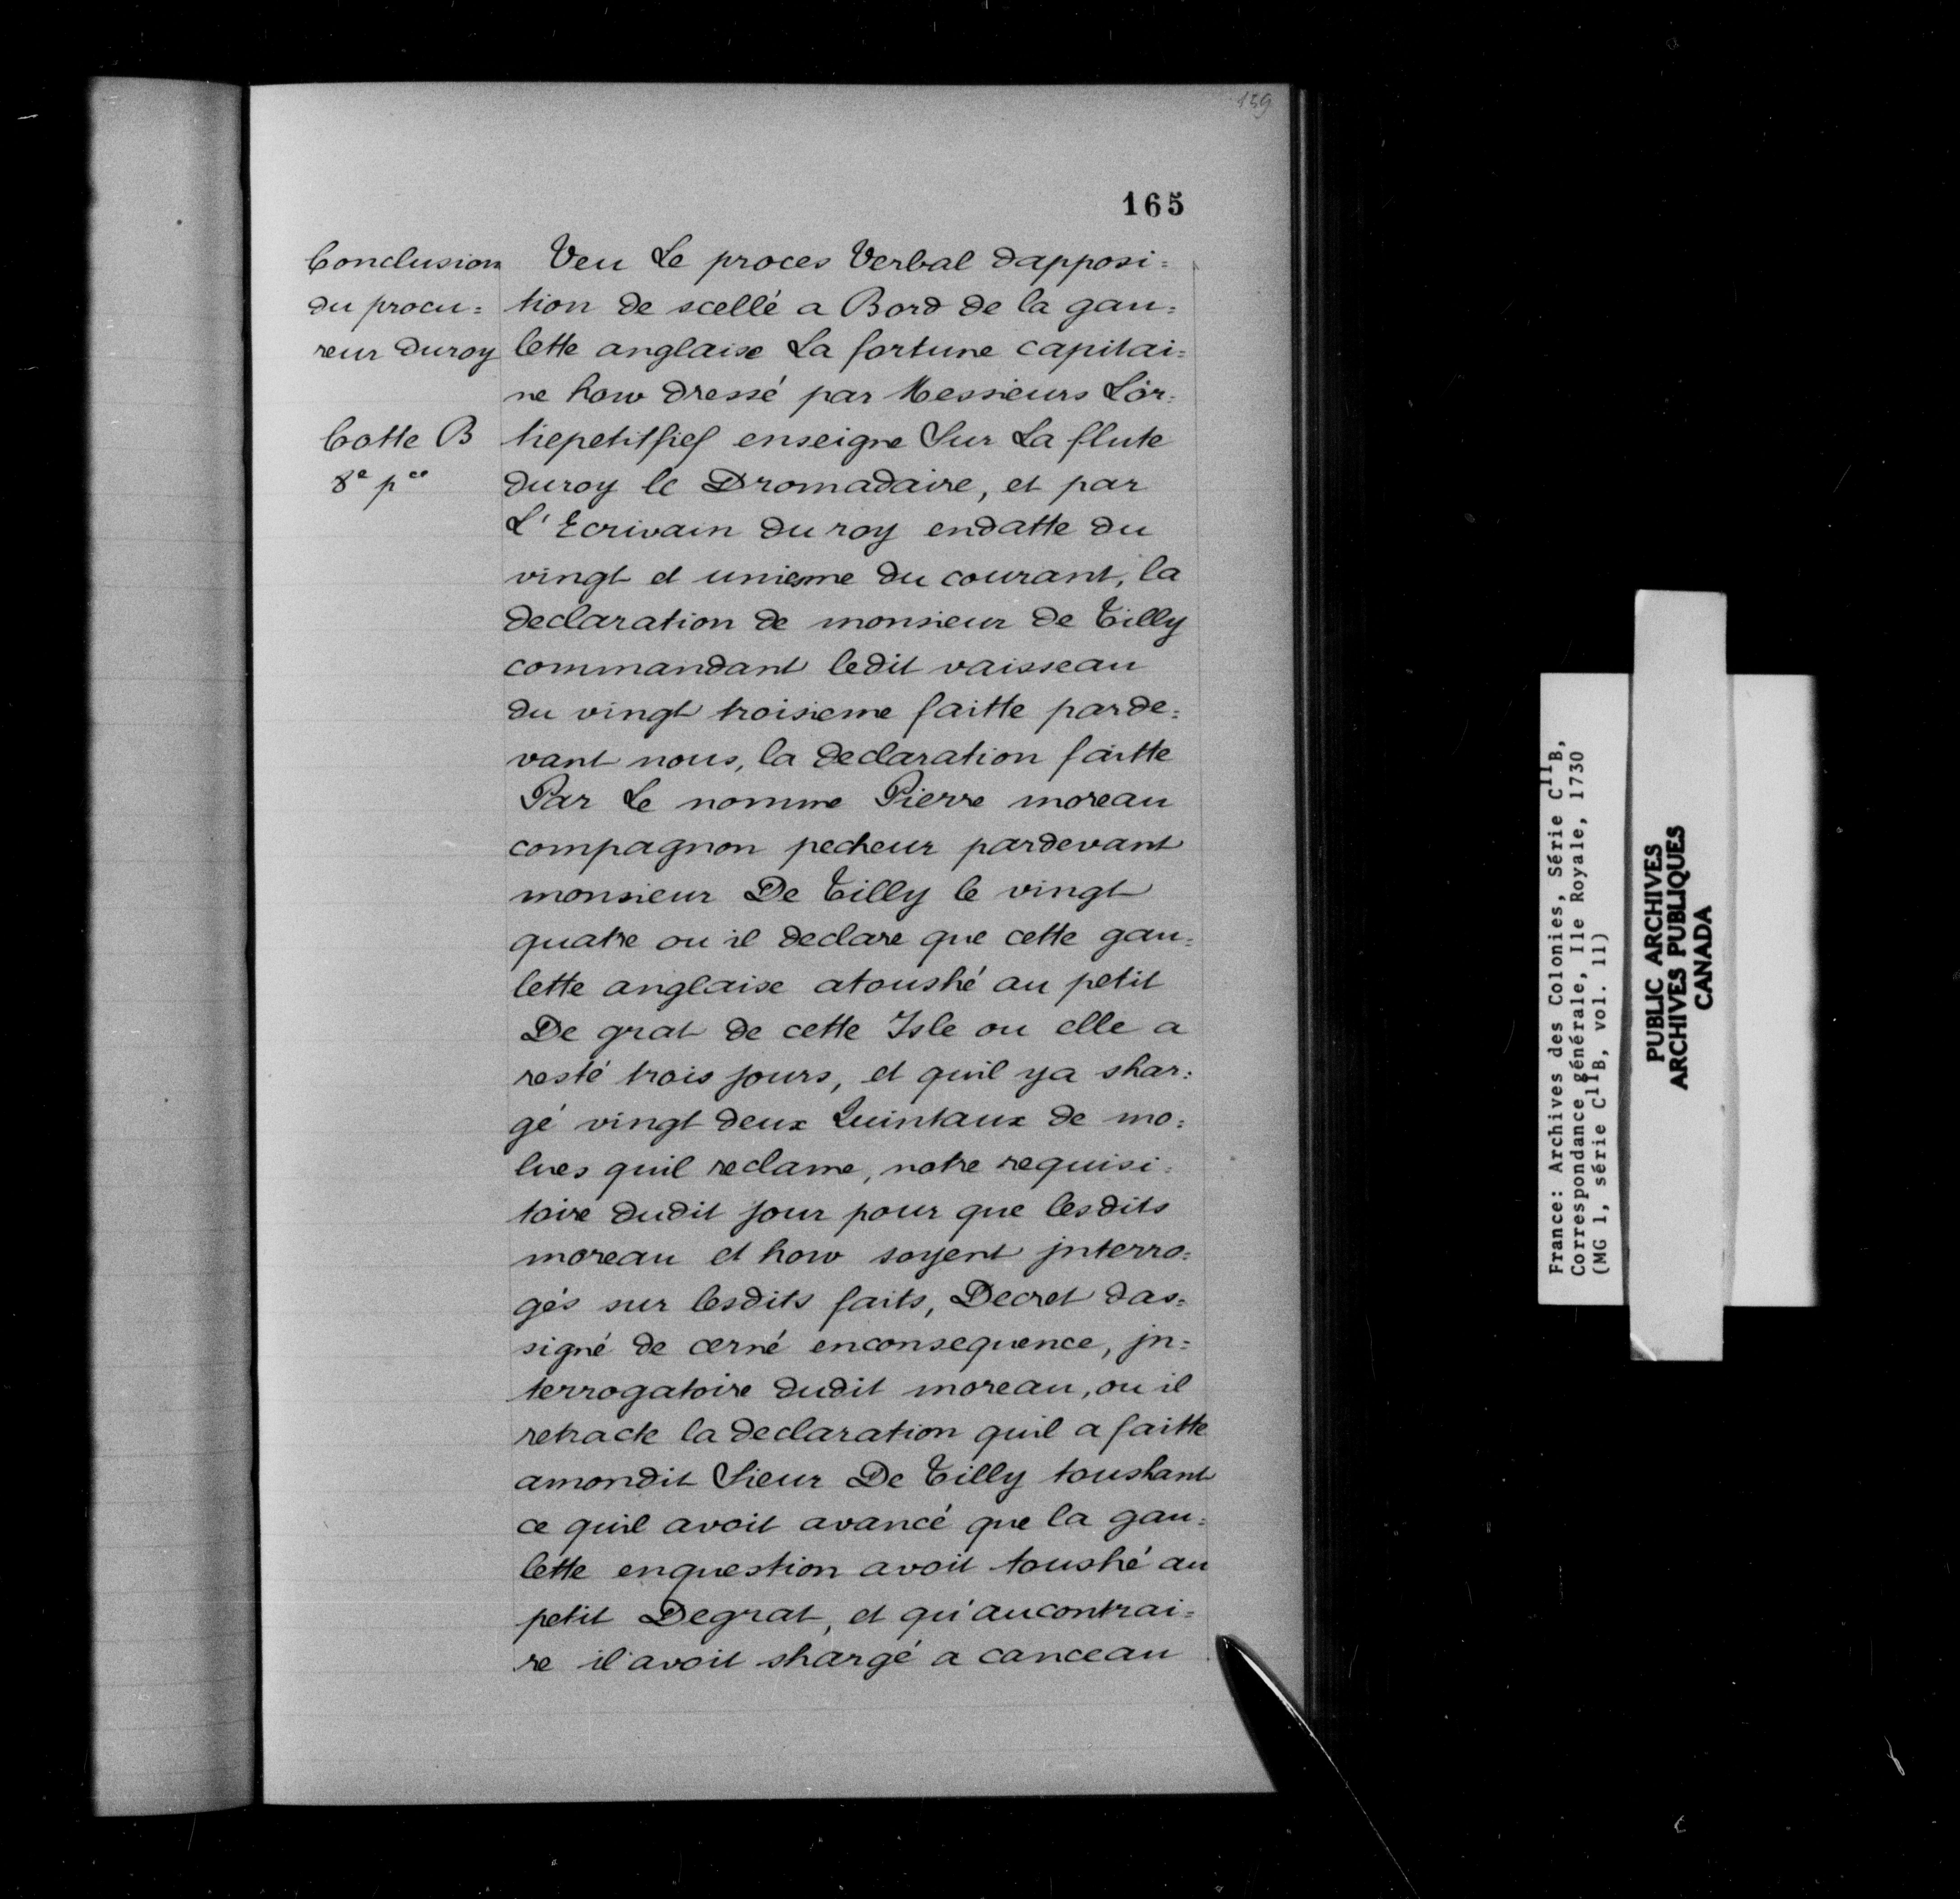 159
165
Conclusion
du procu=
reur duroy
Cotte B
8e pce
Veu Le proces Verbal dapposi=
tion de scellé a Bord de la gau=
lette anglaise La fortune capitai=
ne how dressé par Messieurs Lor=
tiepetitfief enseigne Sur La flute
duroy le Dromadaire, et par
L'Ecrivain du roy endatte du
vingt et unieme du courant, la
declaration de monsieur de Tilly
commandant ledit vaisseau
du vingt troisieme faitte parde=
vant nous, la declaration faitte
Par Le nomme Pierre moreau
compagnon pecheur pardevant
monsieur De Tilly le vingt
quatre ou il declare que cette gau=
lette anglaise atoushé au petit
De grat de cette Isle ou elle a
resté trois jours, et quil ya shar=
gé vingt deux Quintaux de mo=
lues quil reclame, notre requisi=
toire dudit jour pour que lesdits
moreau et how soyent jnterro=
gés sur lesdits faits, Decret das=
signé de cerné enconsequence, jn=
terrogatoire dudit moreau, ou il
retracte la declaration quil a faitte
amondit Sieur De Tilly toushant
ce quil avoit avancé que la gau=
lette enquestion avoit toushé au
petit Degrat, et qu'aucontrai=
re il avoit shargé a canceau
France: Archives des Colonies, Série C11B,
Correspondance générale, Ile Royale, 1730
(MG 1, série C11B, vol. 11)
PUBLIC ARCHIVES
ARCHIVES PUBLIQUES
CANADA